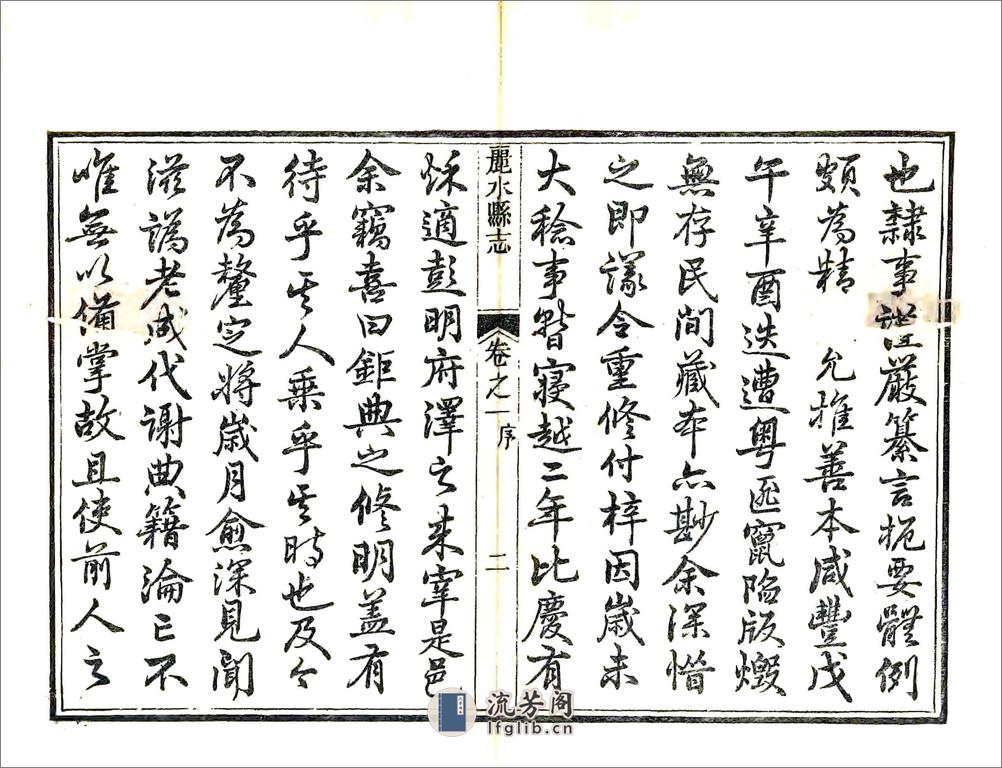 也隸事證嚴纂言扼要體例
頗為精　允推善本咸豐戊
午辛酉迭遭粵匪竄陷版燬
無存民間藏本亦尠余深惜
之即議令重修付梓因歲未
大稔事暫寢越二年比慶有
秌適彭明府澤之來宰是邑
余竊喜曰鉅典之修明盖有
待乎其人乗乎其時也及今
不為釐定將歲月愈深見聞
滋譌老成代謝典籍淪亡不
惟無以備掌故且使前人之
麗水縣志
卷之一 序
二
流芳阁
lfglib.cn